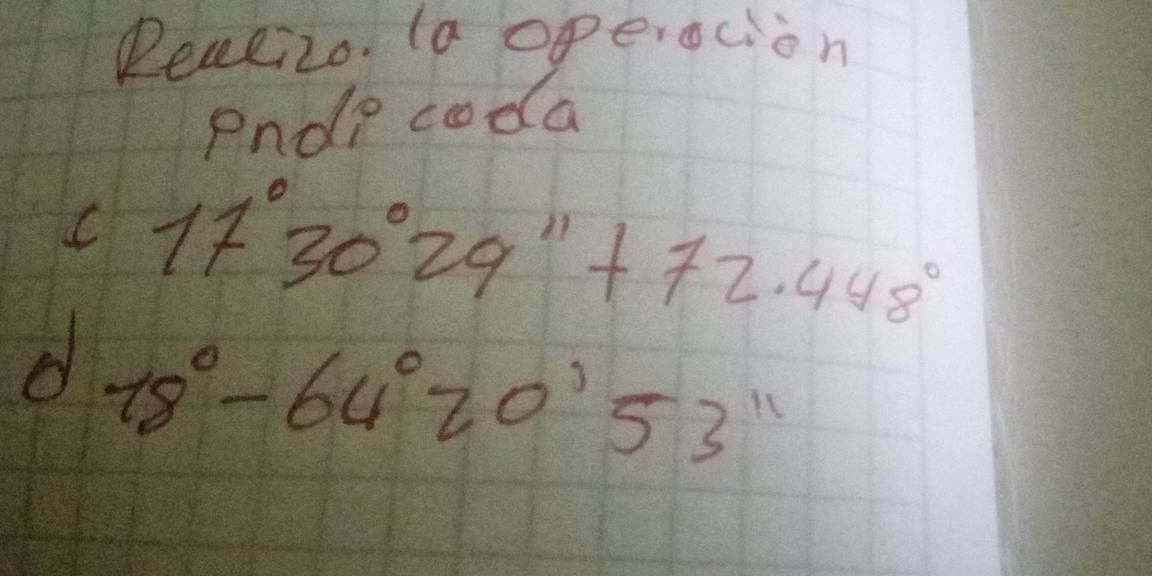 Realizo. la operación
indi coda
c 17°30°29" + 72.448°
d 78° - 64°20'53"